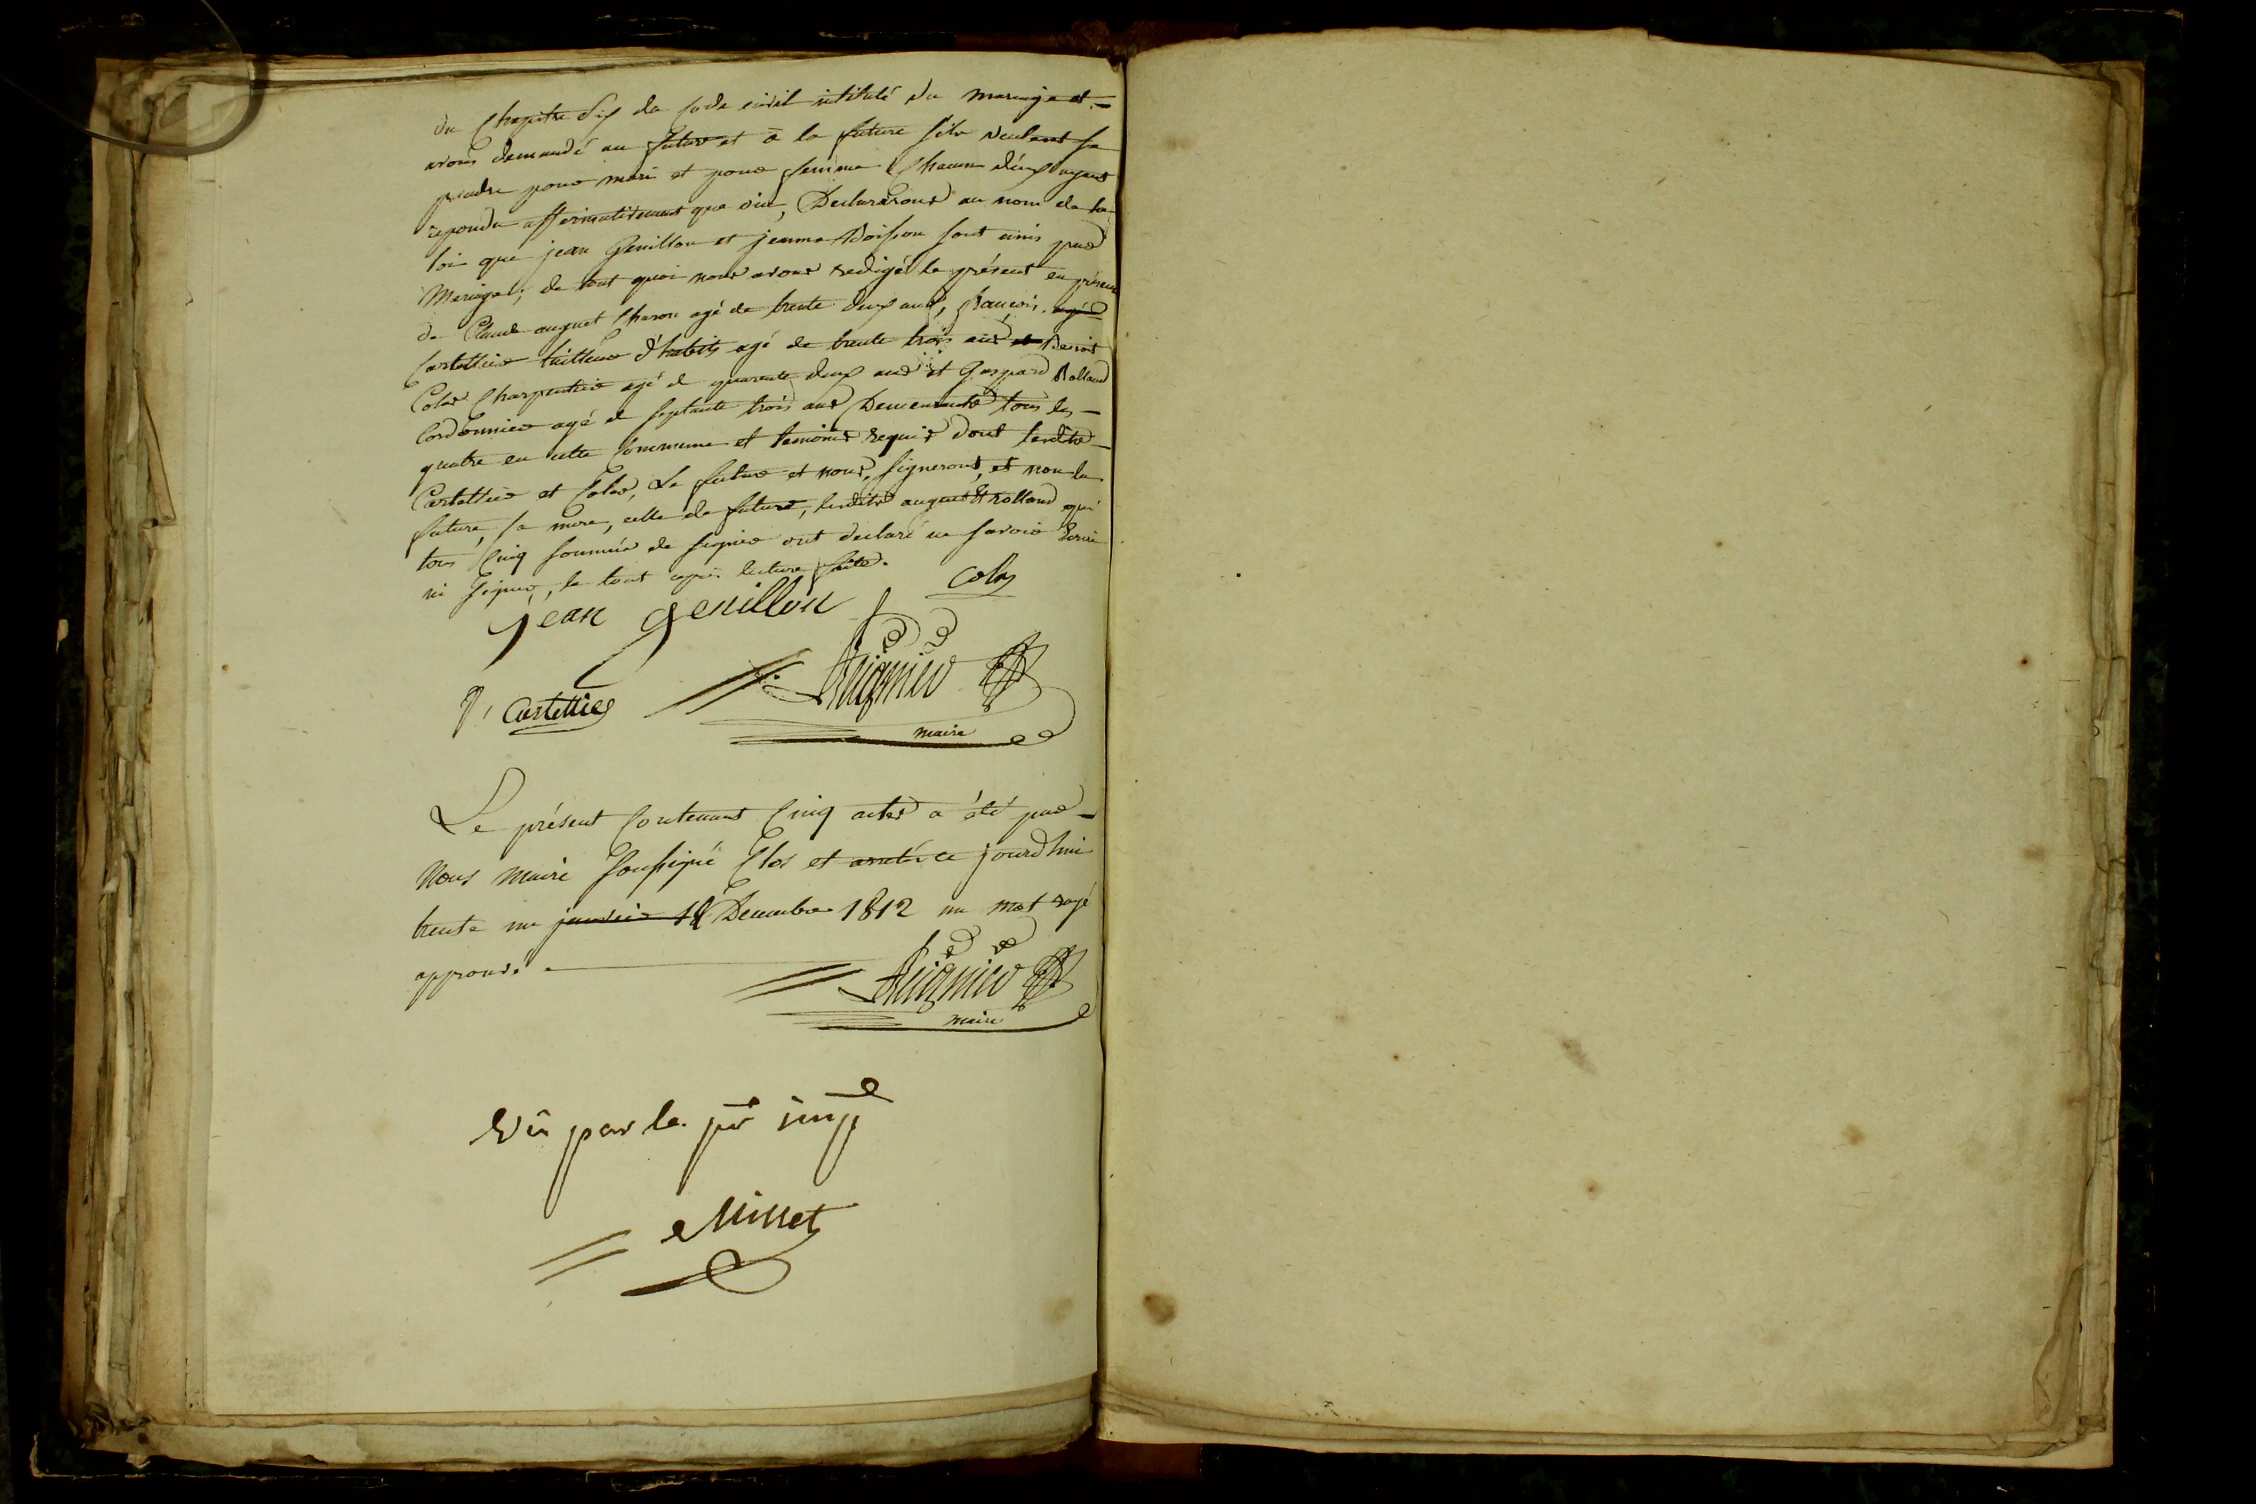 du Chapitre Six du Code civil intitulé du mariage et
avons demandé au futur et à la future s'ils veulent se
prendre pour mari et pour femme Chacun d'eux ayant
repondu affirmativement que oui, Declarerons au nom de la
loi que jean Genillon et jeanne Boisson sont unis par
Mariage; de tout quoi nous avons redigé le présent en présence
de Claude auguet Charon agé de trente deux ans, francois
Cartellier tailleur d'habits agé de trente trois ans Benoit
Colas Charpentier agé de quarante deux ans et Gaspard Rolland
Cordonnier agé de septante trois ans Demeurants tous les
quatre en cette Commune et temoins requis dont lesdits
Cartellier et Colas, Le futur et nous, signerons, et non la
future, sa mere, celle du futur, lesdits auguet et Rolland qui
tous Cinq sommés de signer ont declaré ne savoir Ecrire
ni signer, le tout après lecture faite.
Colas
jean genillon
f. Cartellier
maire
Le présent Contenant Cinq actes a été par
Nous Maire soussigné Clos et arreté ce jourdhui
trente un janvier 18 Decembre 1812 un mot rayé
approuvé
maire
Vû par le pr impl
Minet